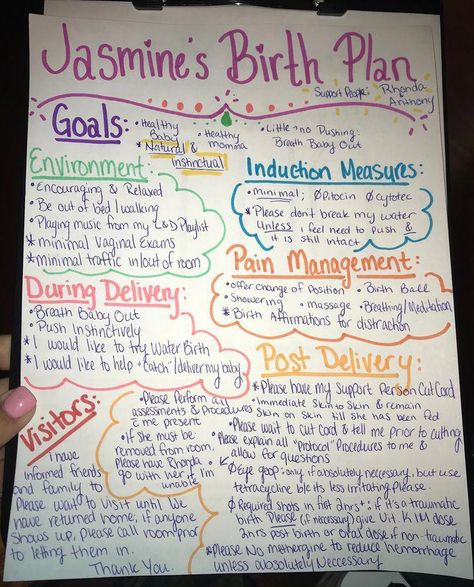 Jasmine's Birth Plan
Support People: Rhonda
Anthony
Goals:
• Healthy
Baby
• Natural &
Instinctual
• Healthy
momma
• Little-no Pushing:
Breath Baby Out
Environment:
• Encouraging & Relaxed
• Be out of bed/walking
• Playing music from my L&D Playlist
* minimal Vaginal Exams
* minimal traffic in/out of room
Induction Measures:
• Minimal; Ø Pitocin Ø Cytotec
* Please don't break my water
Unless i feel need to push &
it is still intact
Pain Management:
• Offer change of Position • Birth Ball
• Showering • massage • Breathing/Meditation
* Birth Affirmations for distraction
During Delivery:
• Breath Baby Out
• Push Instinctively
* I would like to try Water Birth
* I would like to help "catch"/deliver my baby
Post Delivery:
* Please have my support person Cut Cord
• Immediate Skin to Skin & remain
Skin on Skin till She has been fed
• Please wait to cut Cord & tell me prior to cutting
• Please explain all "Protocol" Procedures to me &
allow for questions
Ø Eye goop: only if absolutely neccessary, but use
tetracycline b/c its less irritating Please.
Ø Required Shots in first 2hrs*; if it's a traumatic
birth Please (if neccessary) give Vit. K IM dose
2hrs post birth or Oral dose if non-traumatic
* Please No methergine to reduce hemorrhage
unless absolutely Neccessary
• Please Perform all
assessments & Procedures
c̄ me present
• If She must be
removed from room,
Please have Rhonda
go with her if I'm
unable
Visitors:
I have
informed friends
and family to
Please wait to visit until We
have returned home; if anyone
Shows up, please call room prior
to letting them in.
Thank You.